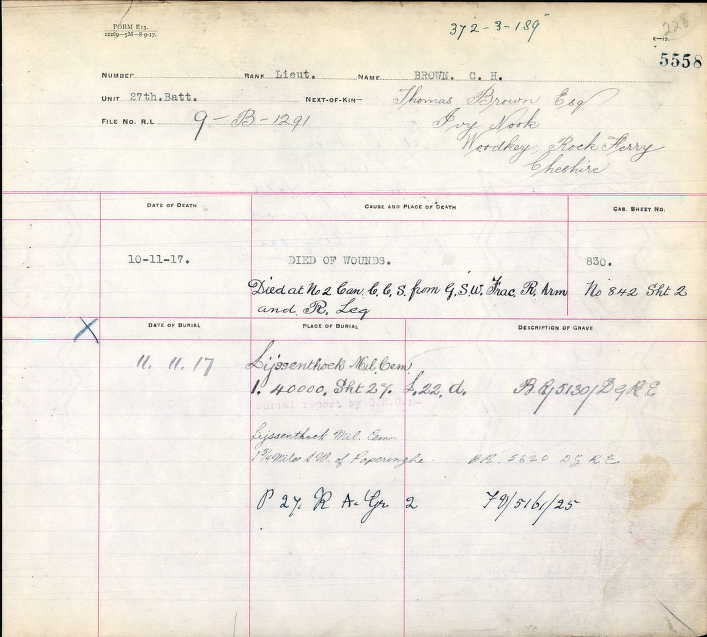 FORM E13.
372-3-189
228
5558
NUMBER RANK Lieut. NAME BROWN. C. H.
UNIT 27th.Batt. NEXT-OF-KIN— Thomas Brown Esq
FILE NO. R.L 9-B-1291 Ivy Nook
Woodhey Rock Ferry
Cheshire
DATE OF DEATH CAUSE AND PLACE OF DEATH CAS. SHEET NO.
10-11-17. DIED OF WOUNDS. 830.
Died at No 2 Can. C. C. S. from G.S.W. Frac. R. Arm No 842 Sht 2
and R. Leg
DATE OF BURIAL PLACE OF BURIAL DESCRIPTION OF GRAVE
11. 11. 17 Lijssenthoek Mil. Cem
1. 40000. Sht 27. L.22.d. B.R/5130/DGRE
Lijssenthoek Mil. Cem
1¾ Miles S.W. of Poperinghe B.R. 5620 DGRE
P 27. R A. Gr 2 79/5161/25